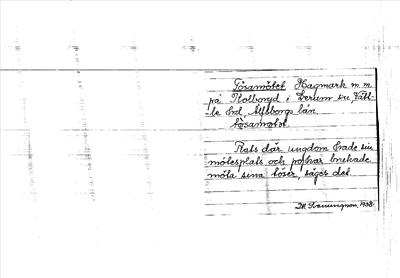 Tösamötet Hagmark m.m.
på Kolboryd i Lerum sn, Vätt-
le hd, Älvsborgs län.
Tösamotet
Plats där ungdom hade sin
mötesplats och pojkar brukade
möta sina töser, säges det.
1938